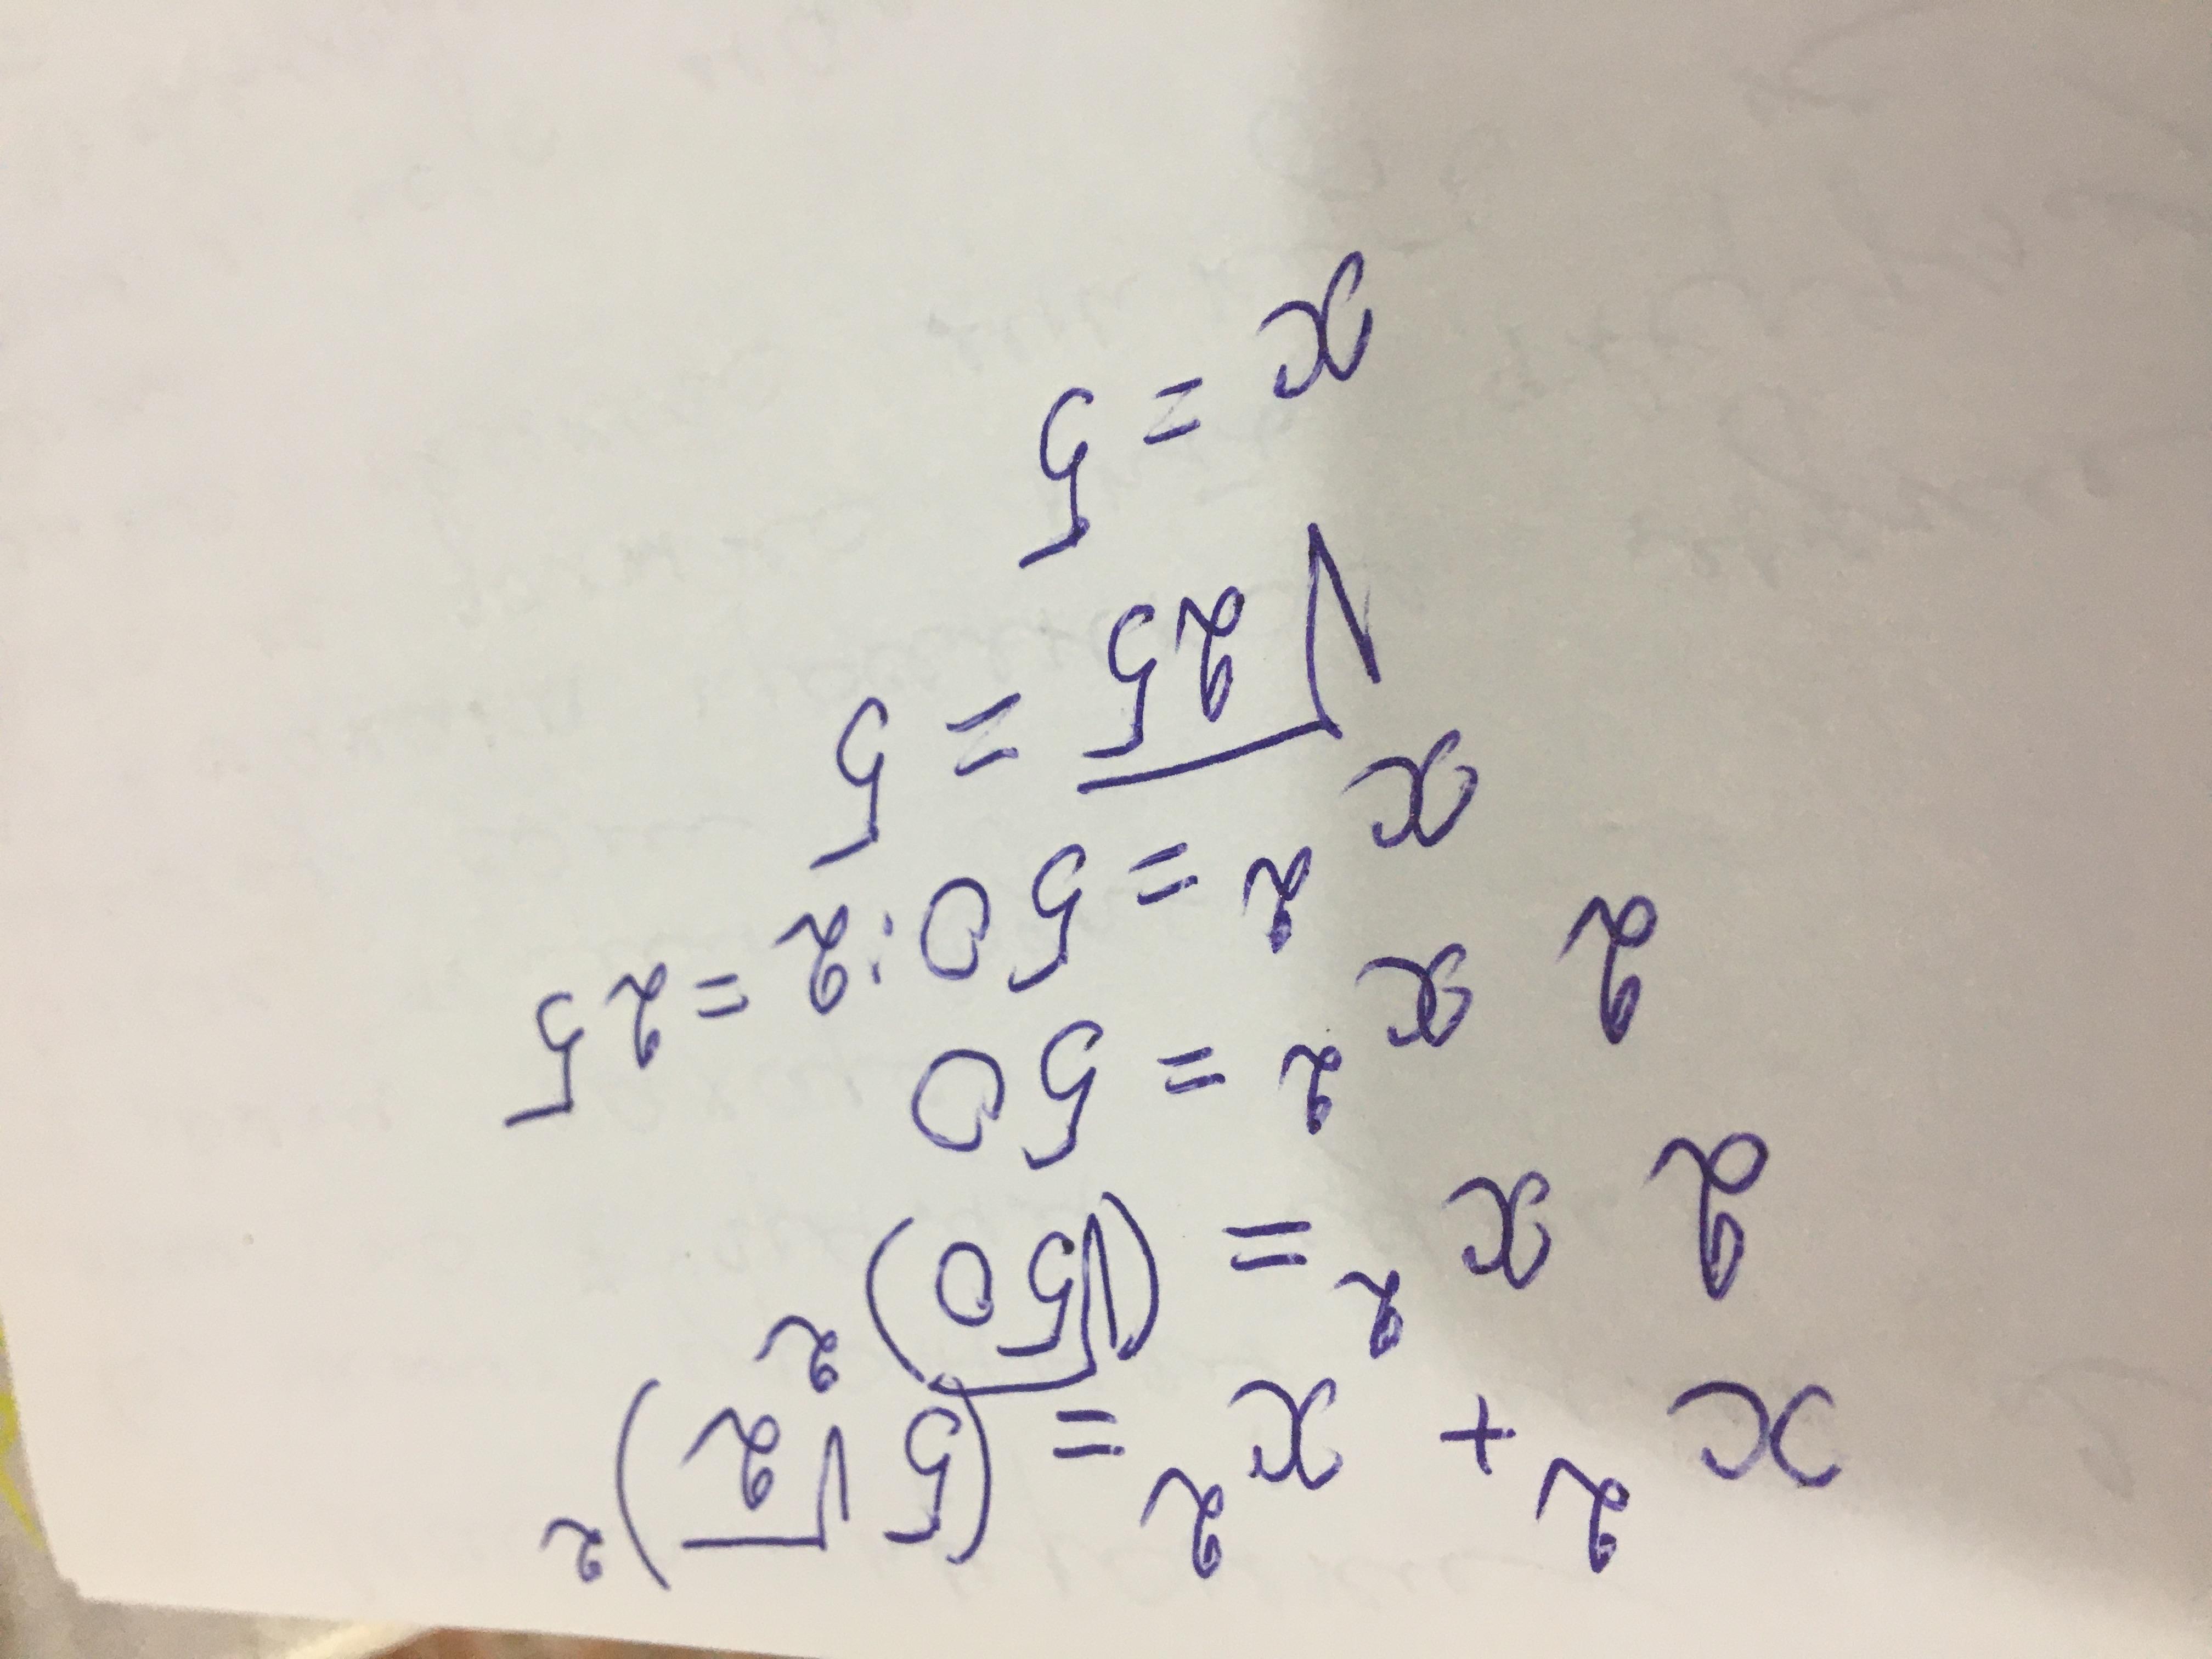 x² + x² = (5√2)²
2x² = (√50)²
2x² = 50
x² = 50 : 2 = 25
√25 = 5
x = 5